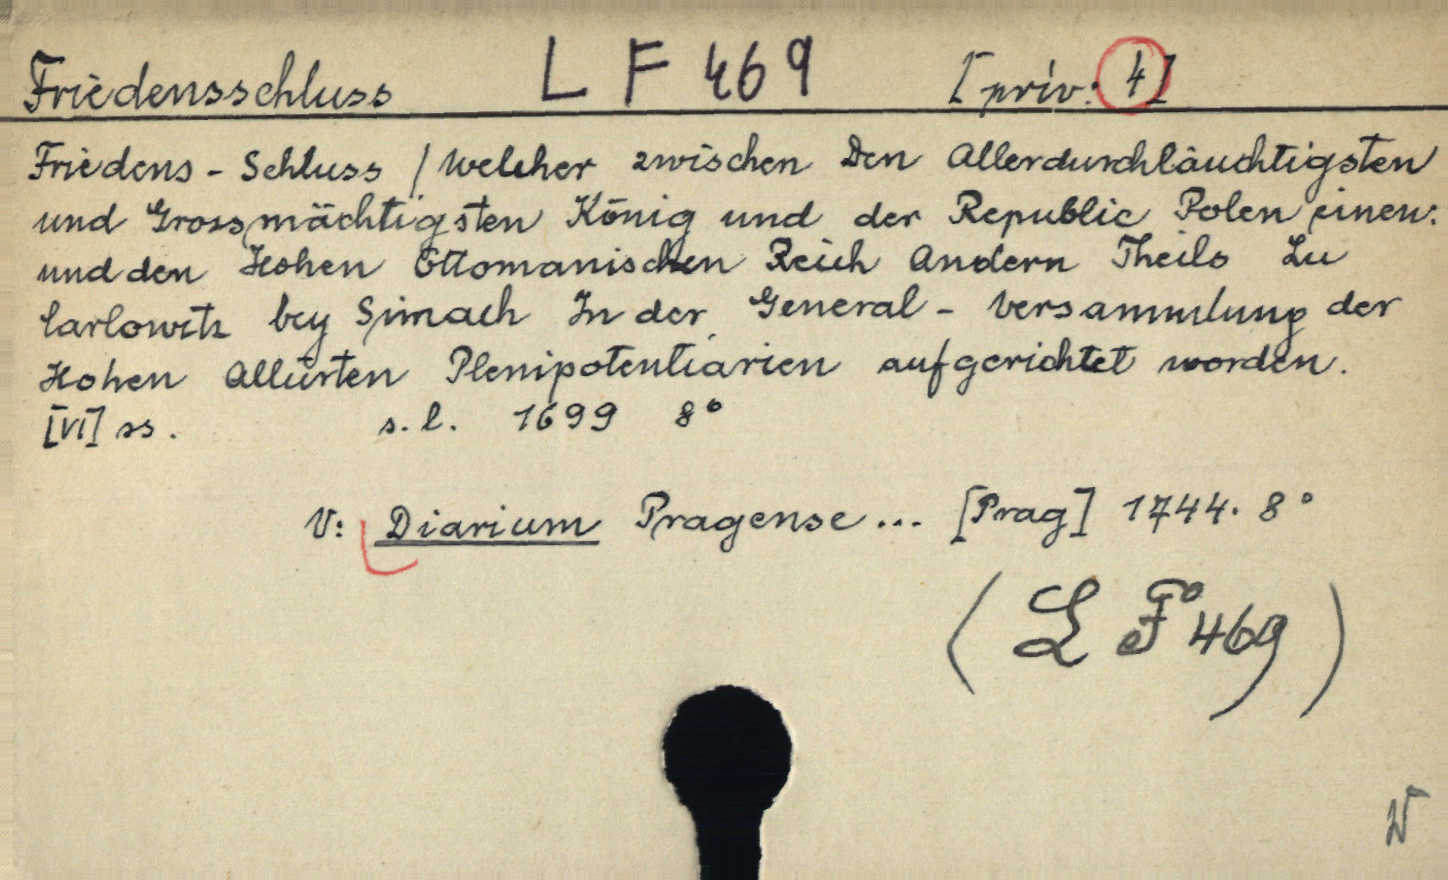 Friedensschluss L F 469 [priv: 4]
Friedens-Schluss / Welcher zwischen Den Allerdurchläuchtigsten
und Grossmächtigsten König und der Republic Polen einen:
und den Hohen Ottomanischen Reich Andern Theils Zu
Carlowitz bey Simach In der General-Versammlung der
Hohen Alliirten Plenipotentiarien aufgerichtet worden.
[VI] ss. s. l. 1699 8°
V: Diarium Pragense... [Prag] 1744. 8°
(L F° 469)
W